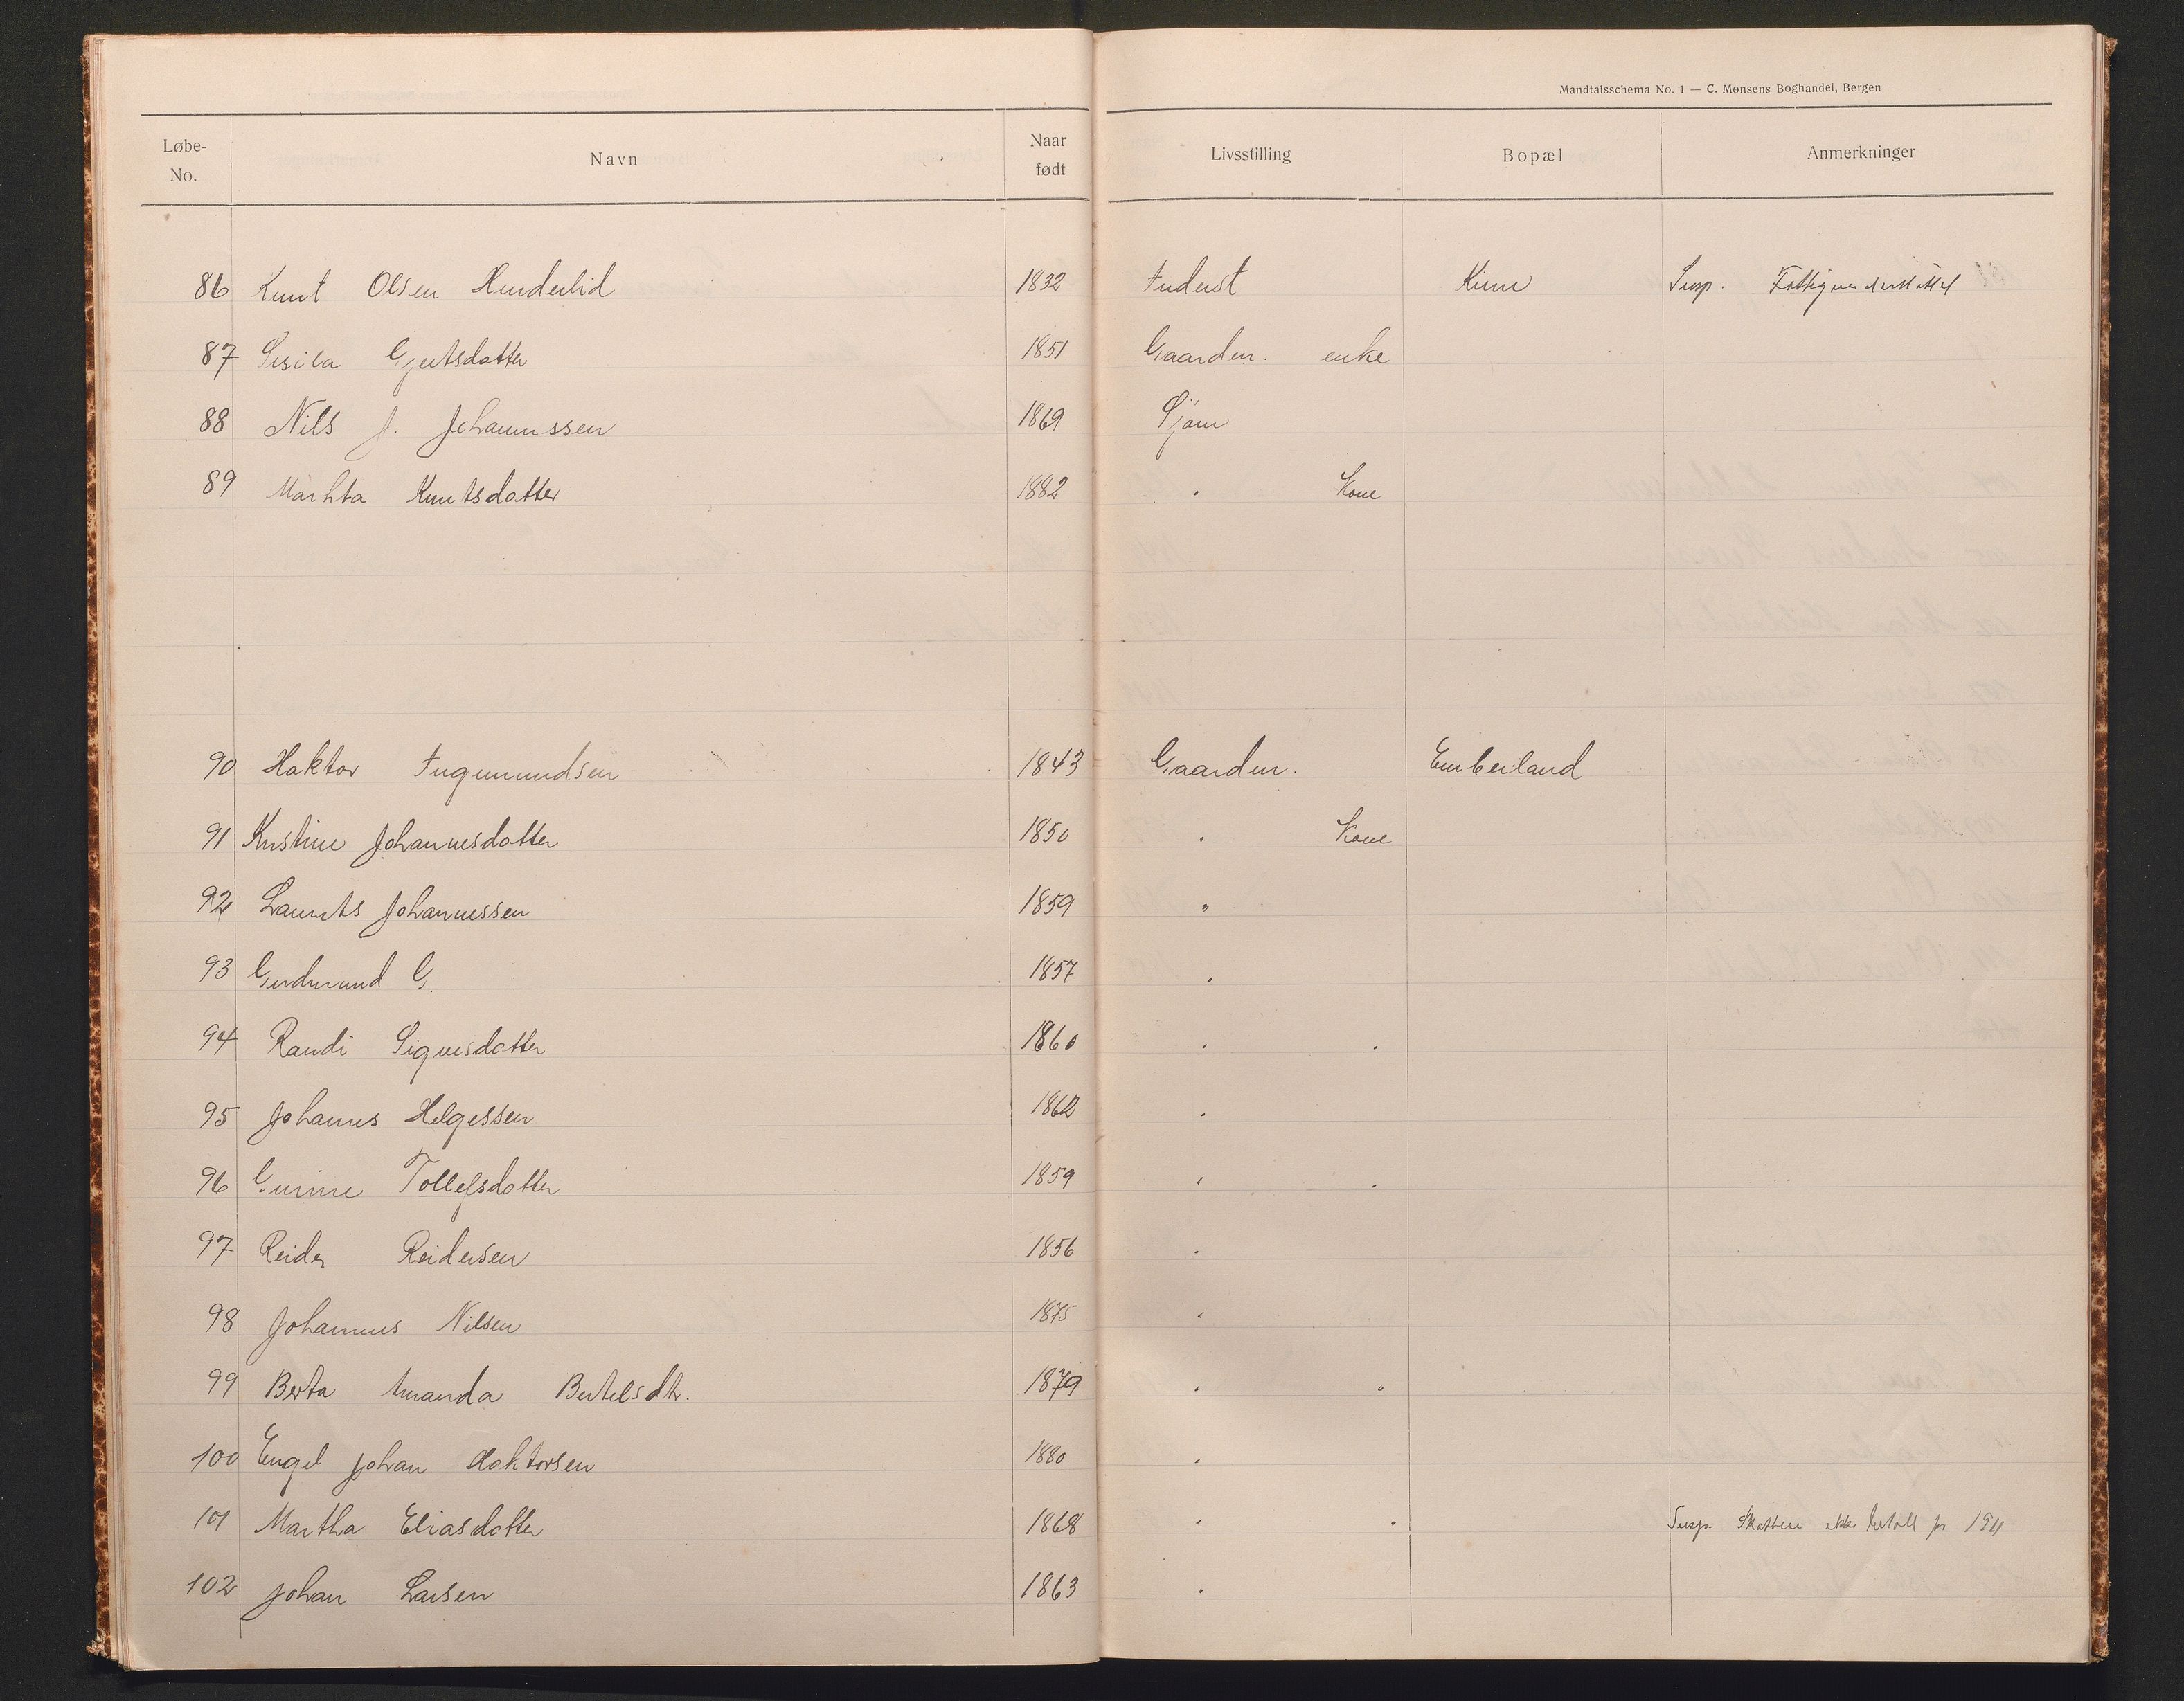 Mandtalsschema No. 1 — C. Monsens Boghandel, Bergen
Løbe-No. Navn Naar født Livsstilling Bopæl Anmerkninger
86 Knut Olsen Hunderlid 1832 Inderst Kinn Susp. Fattigunderstøttet
87 Sisila Gjertsdotter 1851 Gaardm. enke
88 Nils J. Johannssen 1869 Sjøm
89 Marhta Knutsdotter 1882 " Kone
90 Haktor Ingemundsen 1843 Gaardm. Emberland
91 Kristine Johannesdotter 1850 " Kone
92 Laurits Johannessen 1859 "
93 Gudmund G. 1857 "
94 Randi Signesdotter 1860 " "
95 Johannes Helgessen 1862 "
96 Gurine Tollefsdotter 1859 " "
97 Reider Reidersen 1856 "
98 Johannes Nilsen 1875 "
99 Berta Amanda Bertelsdtr. 1879 " "
100 Engel Johan Haktorsen 1880 "
101 Martha Eliasdotter 1868 " " Susp. Skattene ikke betalt for 1911
102 Johan Larsen 1863 "